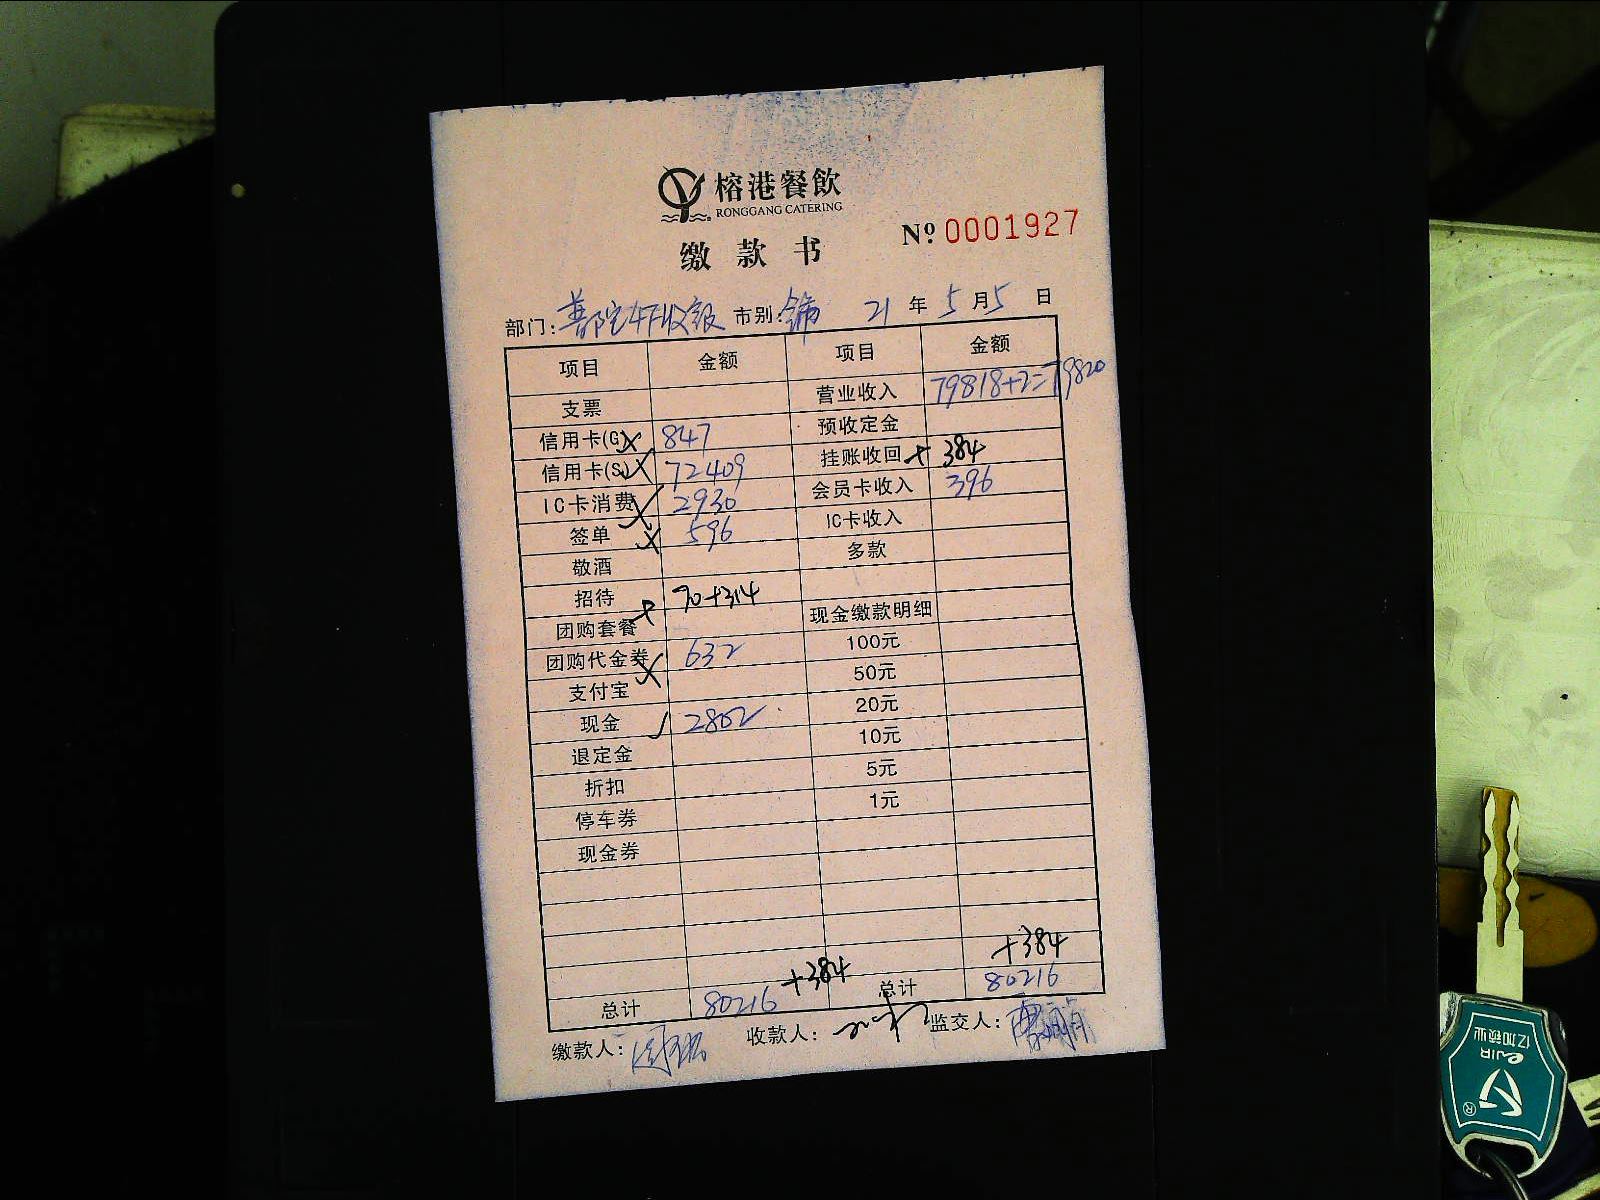 榕港餐飲
RONGGANG CATERING
缴款书
№ 0001927
部门: 市别: 21年5月5日
项目 金额 项目 金额
支票 营业收入 79818+2=79820
信用卡(G) 847 预收定金
信用卡(S) 72409 挂账收回 + 384
IC卡消费 2930 会员卡收入 396
签单 596 IC卡收入
敬酒 多款
招待 70+314
团购套餐 现金缴款明细
团购代金券 632 100元
支付宝 50元
现金 2802 20元
退定金 10元
折扣 5元
停车券 1元
现金券
+384 +384
总计 80216 总计 80216
缴款人: 收款人: 监交人:
eJIR
亿加锁业
®